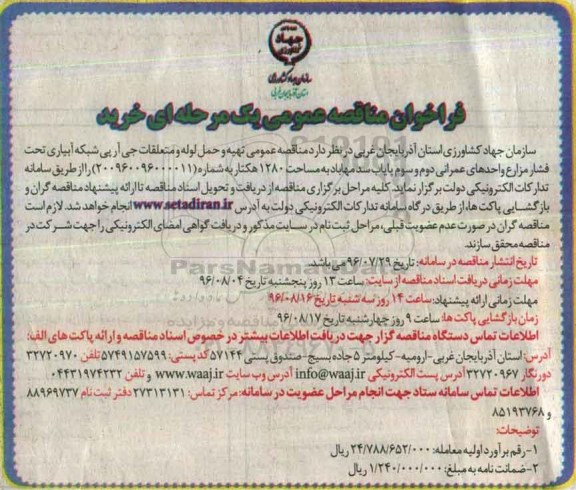 جهاد
کشاورزی
سازمان جهاد کشاورزی
استان آذربایجان غربی
فراخوان مناقصه عمومی یک مرحله ای خرید
سازمان جهاد کشاورزی استان آذربایجان غربی در نظر دارد مناقصه عمومی تهیه و حمل لوله و متعلقات جی آر پی شبکه آبیاری تحت
فشار مزارع واحدهای عمرانی دوم و سوم پایاب سد مهاباد به مساحت ۱۲۸۰ هکتار به شماره (۲۰۰۹۶۰۰۹۶۰۰۰۰۱۱) را از طریق سامانه
تدارکات الکترونیکی دولت برگزار نماید. کلیه مراحل برگزاری مناقصه از دریافت و تحویل اسناد مناقصه تا ارائه پیشنهاد مناقصه گران و
بازگشایی پاکت ها، از طریق درگاه سامانه تدارکات الکترونیکی دولت به آدرس www.setadiran.ir انجام خواهد شد. لازم است
مناقصه گران در صورت عدم عضویت قبلی، مراحل ثبت نام در سایت مذکور و دریافت گواهی امضای الکترونیکی را جهت شرکت در
مناقصه محقق سازند.
تاریخ انتشار مناقصه در سامانه: تاریخ ۹۶/۰۷/۲۹ می باشد.
مهلت زمانی دریافت اسناد مناقصه از سایت: ساعت ۱۳ روز پنجشنبه تاریخ ۹۶/۰۸/۰۴
مهلت زمانی ارائه پیشنهاد: ساعت ۱۴ روز سه شنبه تاریخ ۹۶/۰۸/۱۶
زمان بازگشایی پاکت ها: ساعت ۹ روز چهارشنبه تاریخ ۹۶/۰۸/۱۷
اطلاعات تماس دستگاه مناقصه گزار جهت دریافت اطلاعات بیشتر در خصوص اسناد مناقصه و ارائه پاکت های الف:
آدرس: استان آذربایجان غربی-ارومیه-کیلومتر ۵ جاده بسیج-صندوق پستی ۵۷۱۴۴ کد پستی: ۵۷۴۹۱۵۷۵۹۹ تلفن ۳۲۷۲۰۹۷۰
دورنگار ۳۲۷۲۰۹۶۷ آدرس پست الکترونیکی info@waaj.ir آدرس وب سایت www.waaj.ir و تلفن ۰۴۴۳۱۹۷۴۲۳۲
اطلاعات تماس سامانه ستاد جهت انجام مراحل عضویت در سامانه: مرکز تماس: ۲۷۳۱۳۱۳۱ دفتر ثبت نام ۸۸۹۶۹۷۳۷
و ۸۵۱۹۳۷۶۸
توضیحات:
۱-رقم برآورد اولیه معامله: ۲۴/۷۸۸/۶۵۲/۰۰۰ ریال
۲-ضمانت نامه به مبلغ: ۱/۲۴۰/۰۰۰/۰۰۰ ریال